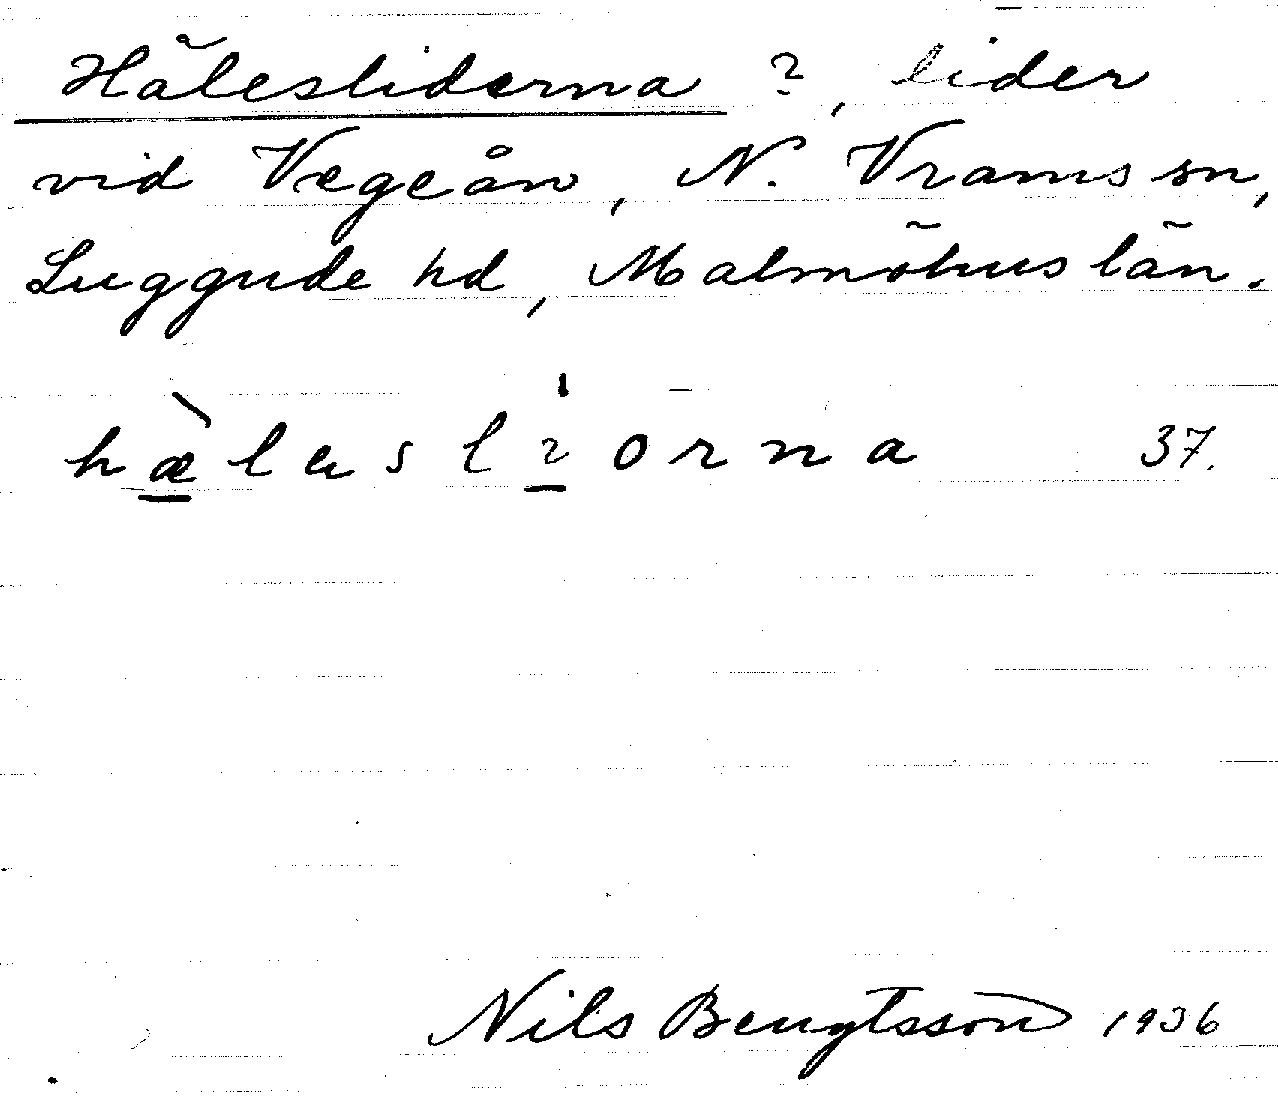 Hälesliderna ?, lider
vid Vegeån, N. Vrams sn,
Luggude hd, Malmöhus län.
hæ̀lɐslɩornа 37.
Nils Bengtsson 1936